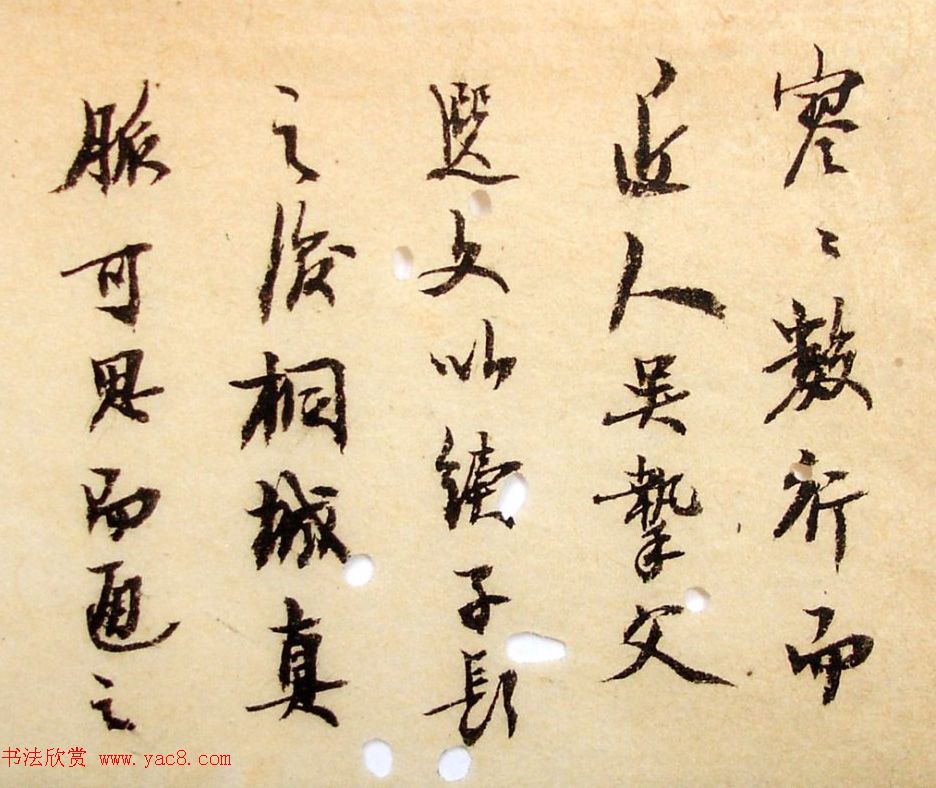 寥〻數行而
近人吴摯父
選文以續子長
之後桐城真
脈可思而通之
书法欣赏 www.yac8.com